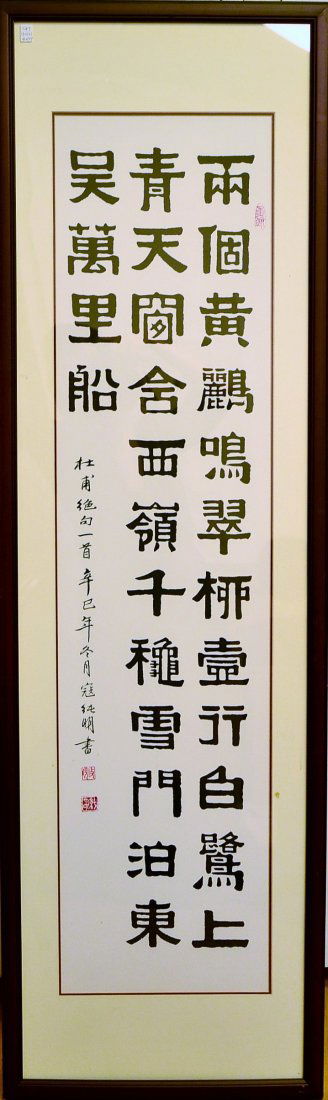 兩個黄鸝鳴翠栁壹行白鷺上
青天窗含西嶺千龝雪門泊東
吴萬里船
杜甫絕句一首 辛巳年冬月寇純明書